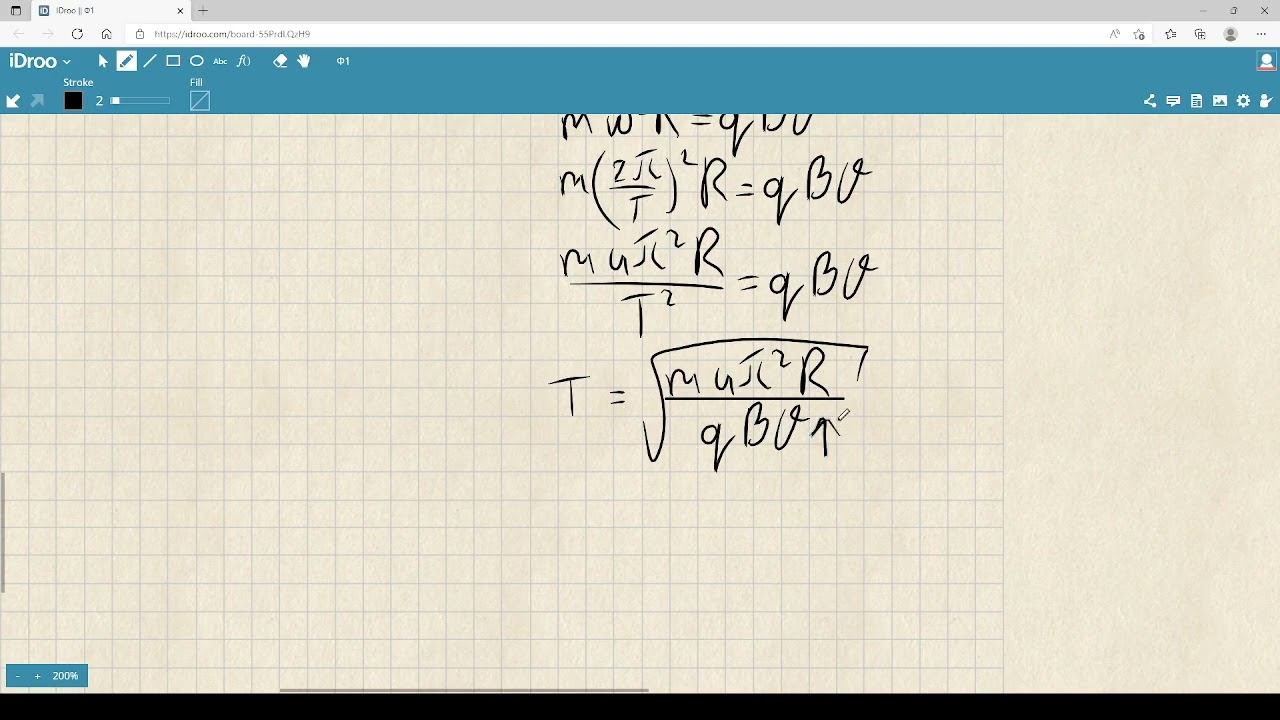 IDroo || Ф1
https://idroo.com/board-55PrdLQzH9
iDroo
Abc
f()
Ф1
Stroke
2
Fill
m ω² R = qBυ
m(2π/T)² R = qBυ
m4π²R/T² = qBυ
T = √(m4π²R/qBυ↑)
- + 200%